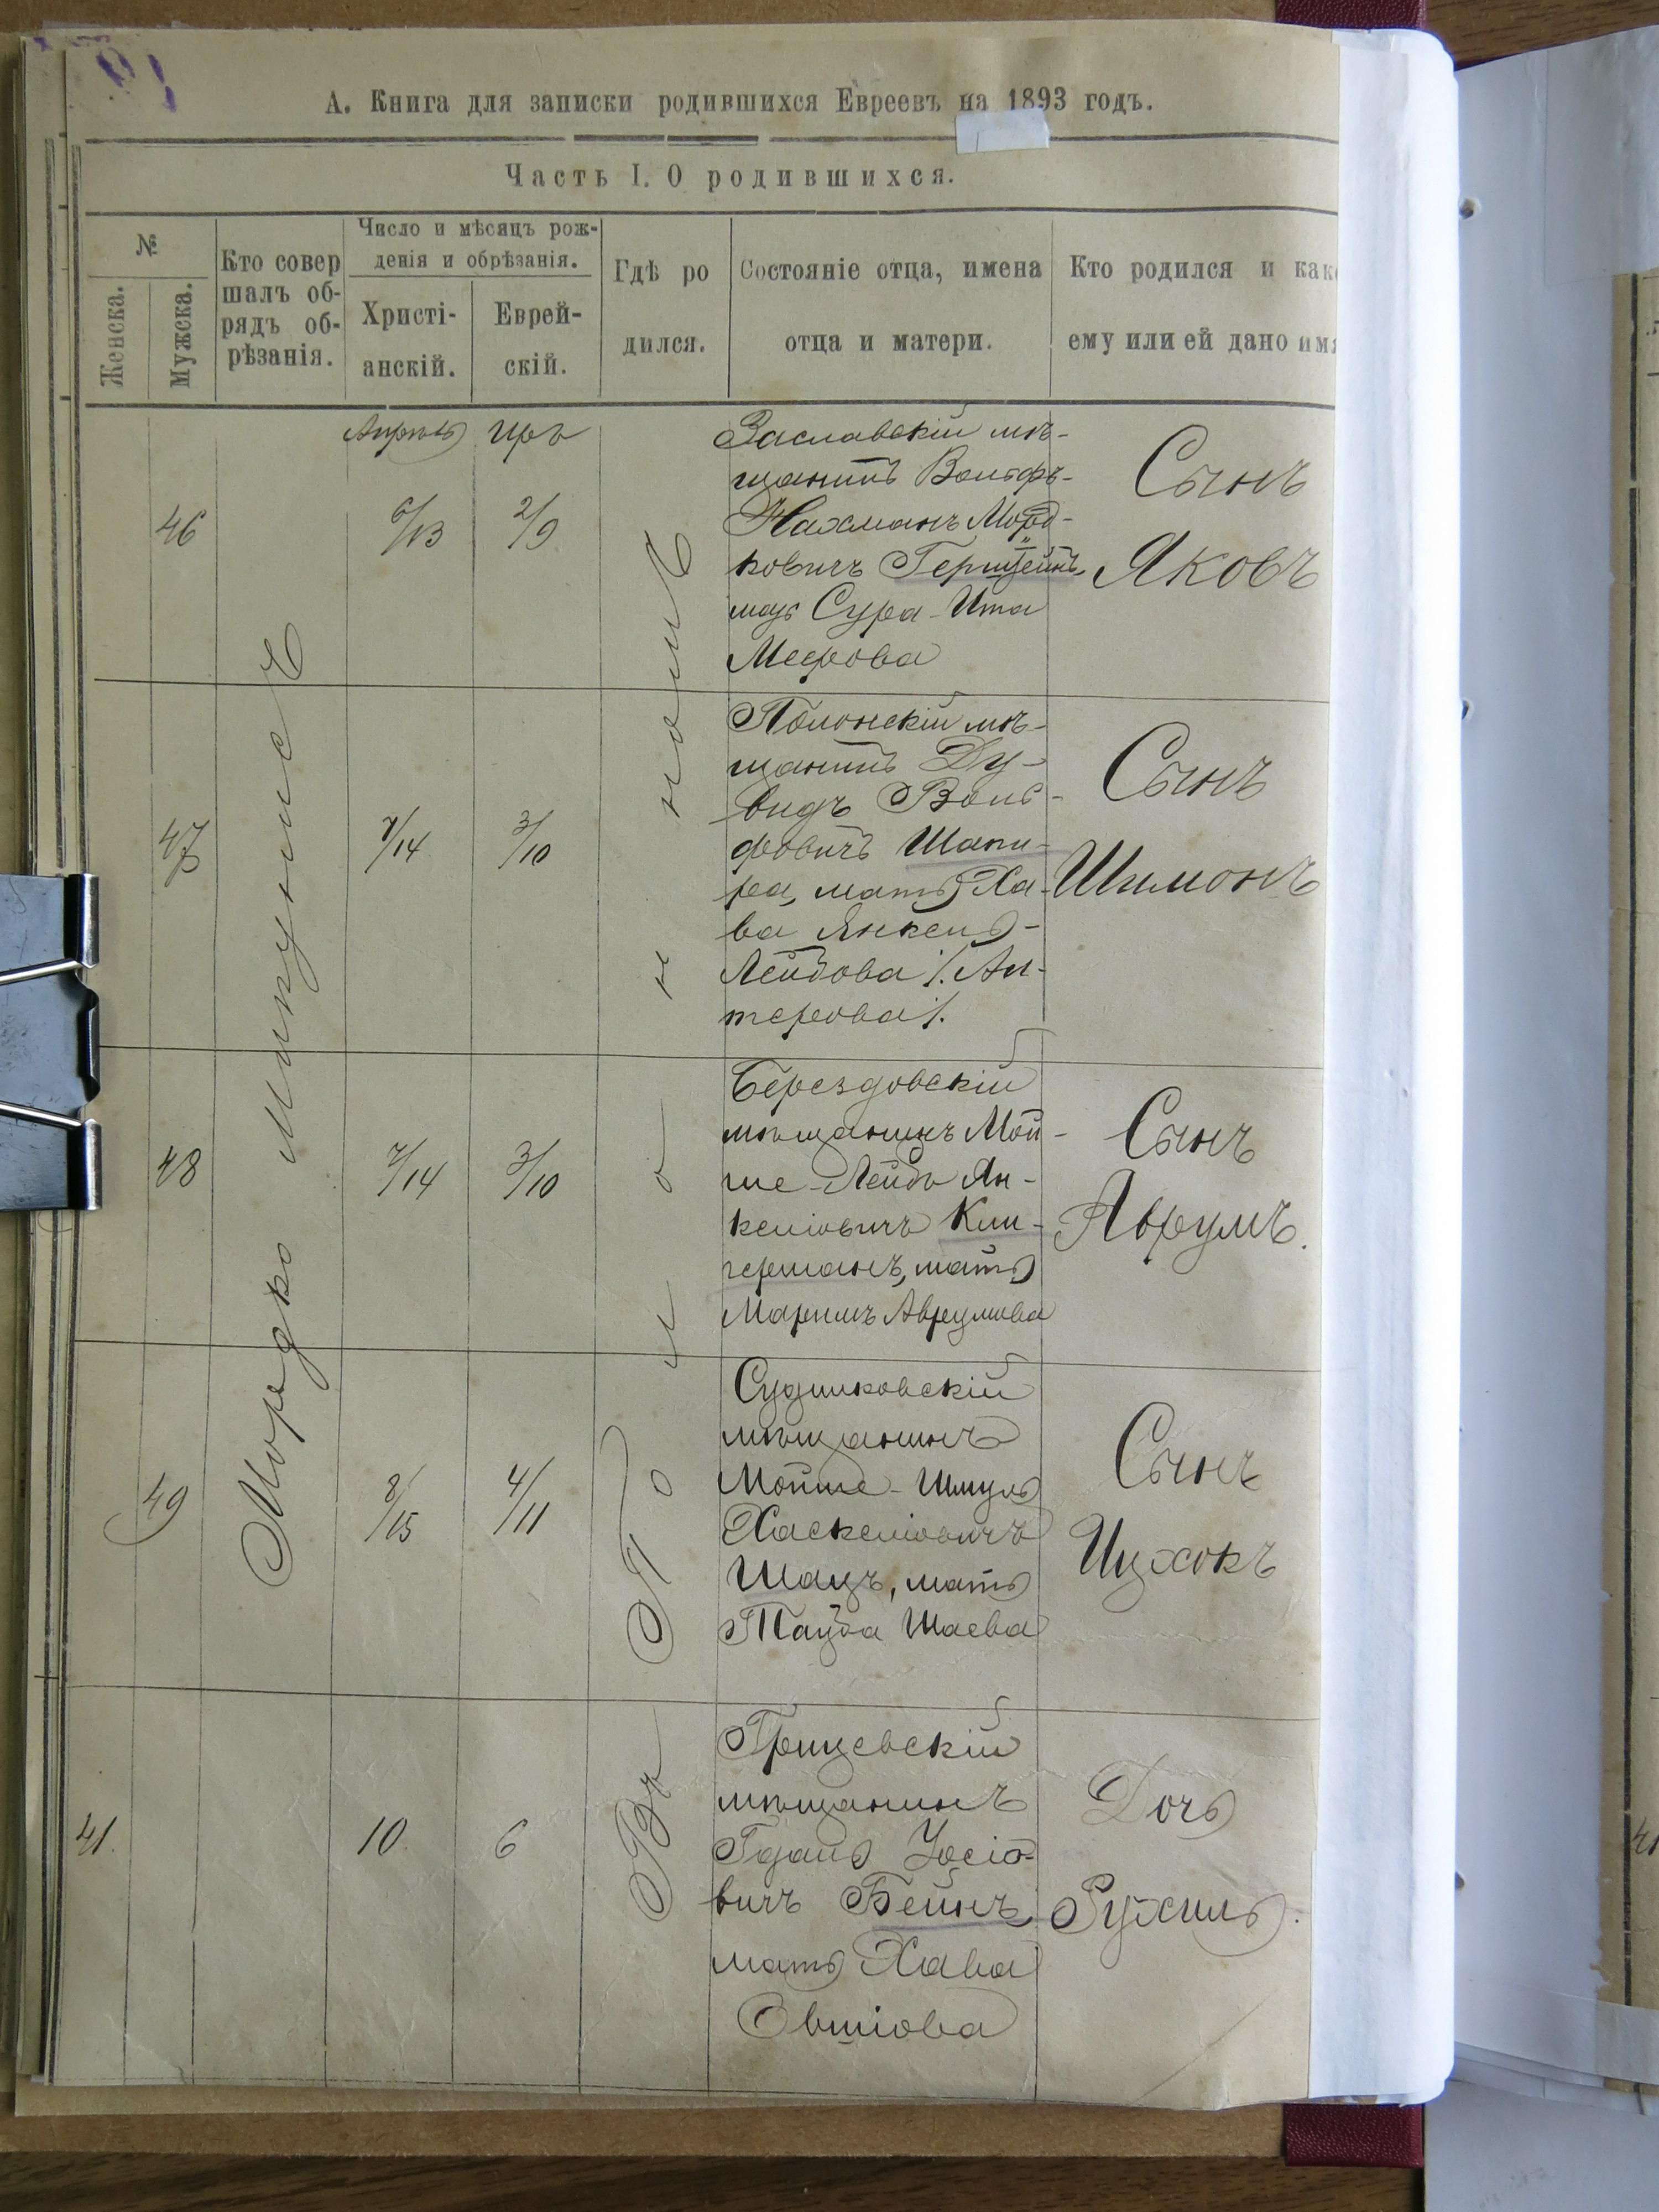 А. Книга для записки родившихся Евреевъ на 1893 годъ.
Часть I. О родившихся.
№
Женска.
Мужска.
Кто совер
шалъ об-
рядъ об-
рѣзанія.
Число и мѣсяцъ рож-
денія и обрѣзанія.
Христі-
анскій.
Еврей-
скій.
Гдѣ ро
дился.
Состояніе отца, имена
отца и матери.
Кто родился и как
ему или ей дано имя
Мордко
Въ Полонномъ
Апрѣль
46
6/13
2/9
Заславскій мѣ-
щанинъ Вольфъ-
Нахманъ Морд-
ковичъ
мать Сура-Ита
Меерова
Сынъ
Яковъ
47
7/14
3/10
Полонскій мѣ-
щанинъ Ду-
видъ Воль-
фовичъ Шапи-
ра, мать Ха-
ва Янкель-
Лейбова /: Ал-
терова /.
Сынъ
Шимонъ
48
7/14
3/10
Берездовскій
мѣщанинъ Мой-
ше-Лейбъ Ян-
келіовичъ
мать
Аврумова
Сынъ
Аврумъ.
49
8/15
4/11
Судилковскій
мѣщанинъ
Мойше-Шмуль
Хаскеліовичъ
Шацъ, мать
Тауба Шаева
Сынъ
Ицхокъ
41.
10
6
Грицевскій
мѣщанинъ
Гдаль Іосіо-
вичъ Бейнъ,
мать Хава
Овшіова
Дочь
Рухиль.